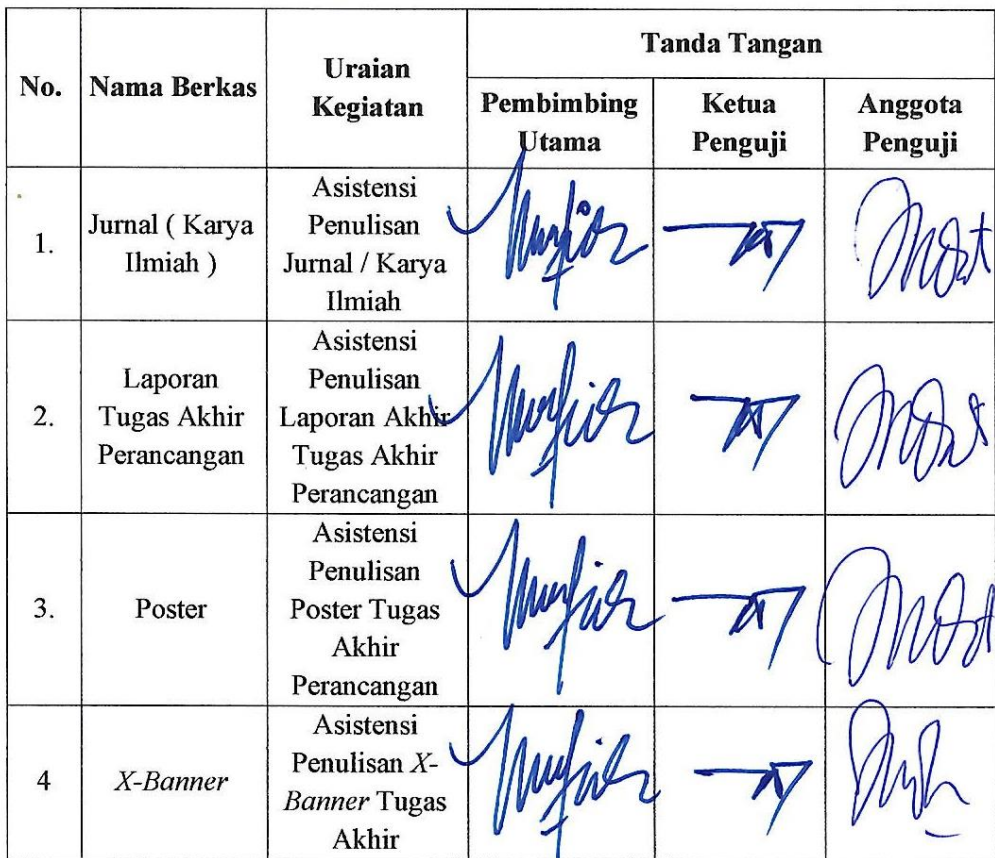 No.
Nama Berkas
Uraian
Kegiatan
Tanda Tangan
Pembimbing
Utama
Ketua
Penguji
Anggota
Penguji
1.
Jurnal ( Karya
Ilmiah )
Asistensi
Penulisan
Jurnal / Karya
Ilmiah
2.
Laporan
Tugas Akhir
Perancangan
Asistensi
Penulisan
Laporan Akhir
Tugas Akhir
Perancangan
3.
Poster
Asistensi
Penulisan
Poster Tugas
Akhir
Perancangan
4
X-Banner
Asistensi
Penulisan X-
Banner Tugas
Akhir